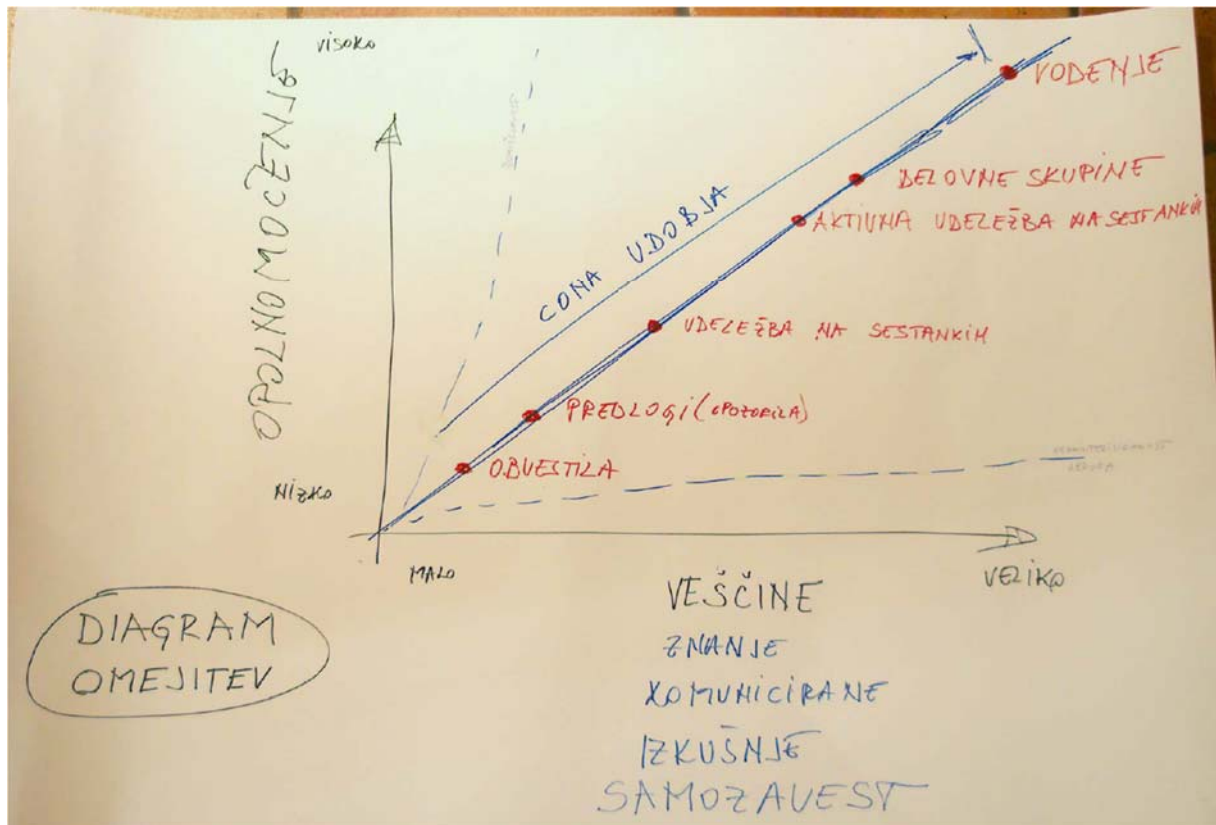 VISOKO
OPOLNOMOČENJE
VODENJE
DELOVNE SKUPINE
AKTIVNA UDELEŽBA NA SESTANKIH
CONA UDOBJA
UDELEŽBA NA SESTANKIH
PREDLOGI (OPOZORILA)
OBVESTILA
NIZKO
MALO
VELIKO
VEŠČINE
ZNANJE
KOMUNICIRANE
IZKUŠNJE
SAMOZAVEST
DIAGRAM
OMEJITEV